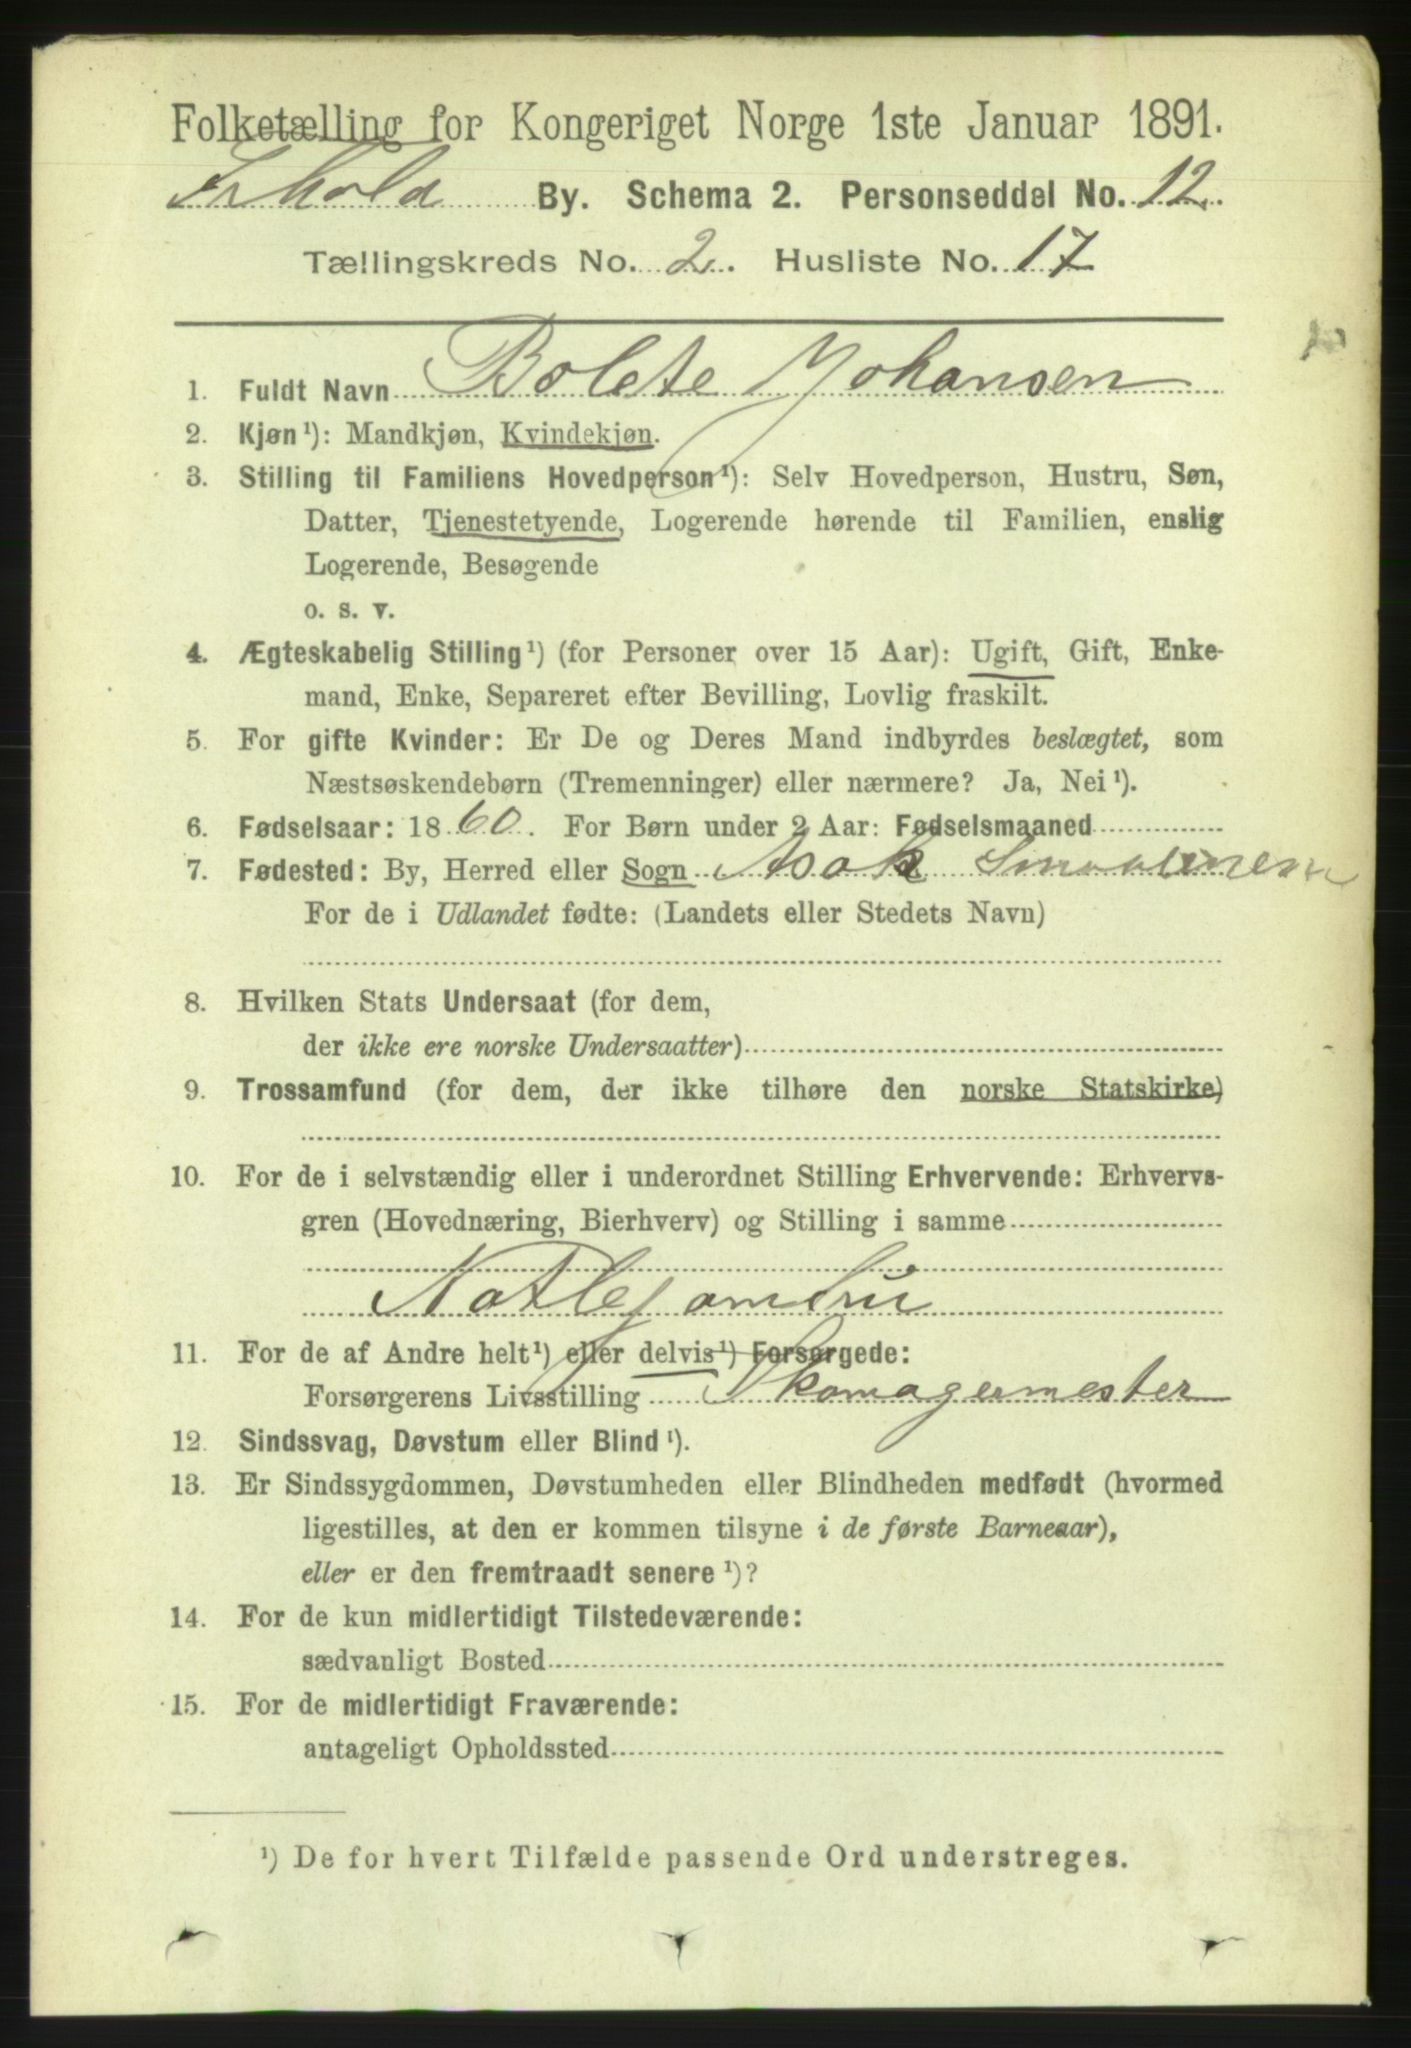 Folketælling for Kongeriget Norge 1ste Januar 1891.
Frhald By. Schema 2. Personseddel No. 12.
Tællingskreds No. 2. Husliste No. 17
1. Fuldt Navn Bolete Johansen
2. Kjøn¹): Mandkjøn, Kvindekjøn.
3. Stilling til Familiens Hovedperson¹): Selv Hovedperson, Hustru, Søn,
Datter, Tjenestetyende, Logerende hørende til Familien, enslig
Logerende, Besøgende
o. s. v.
4. Ægteskabelig Stilling¹) (for Personer over 15 Aar): Ugift, Gift, Enke-
mand, Enke, Separeret efter Bevilling, Lovlig fraskilt.
5. For gifte Kvinder: Er De og Deres Mand indbyrdes beslægtet, som
Næstsøskendebørn (Tremenninger) eller nærmere? Ja, Nei¹).
6. Fødselsaar: 1860. For Børn under 2 Aar: Fødselsmaaned
7. Fødested: By, Herred eller Sogn Asak Smaalenene
For de i Udlandet fødte: (Landets eller Stedets Navn)
8. Hvilken Stats Undersaat (for dem,
der ikke ere norske Undersaatter)
9. Trossamfund (for dem, der ikke tilhøre den norske Statskirke)
10. For de i selvstændig eller i underordnet Stilling Erhvervende: Erhvervs-
gren (Hovednæring, Bierhverv) og Stilling i samme
11. For de af Andre helt¹) eller delvis¹) Forsørgede:
Forsørgerens Livsstilling Skomagermester
12. Sindssvag, Døvstum eller Blind¹).
13. Er Sindssygdommen, Døvstumheden eller Blindheden medfødt (hvormed
ligestilles, at den er kommen tilsyne i de første Barneaar),
eller er den fremtraadt senere¹)?
14. For de kun midlertidigt Tilstedeværende:
sædvanligt Bosted
15. For de midlertidigt Fraværende:
antageligt Opholdssted
¹) De for hvert Tilfælde passende Ord understreges.